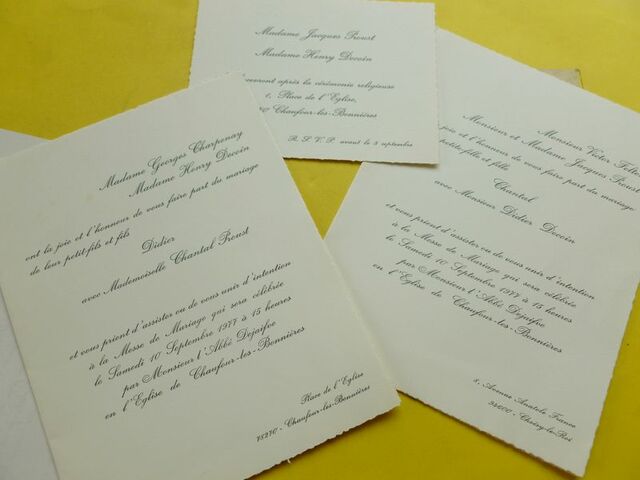 Madame Jacques Proust
Madame Henry Decoin
recevront après la cérémonie religieuse
1, Place de l'Eglise,
Chaufour-les-Bonnières
R. S. V. P. avant le 3 septembre
Madame Georges Charpenay
Madame Henry Decoin
ont la joie et l'honneur de vous faire part du mariage
de leur petit-fils et fils
Didier
avec Mademoiselle Chantal Proust
et vous prient d'assister ou de vous unir d'intention
à la Messe de Mariage qui sera célébrée
le Samedi 10 Septembre 1977 à 15 heures
par Monsieur l'Abbé Dejaifve
en l'Eglise de Chaufour-les-Bonnières
Place de l'Eglise
78270 - Chaufour-les-Bonnières
Monsieur Victor
Monsieur et Madame Jacques Proust
joie et l'honneur de vous faire part du mariage
petite-fille et fille
Chantal
avec Monsieur Didier Decoin
et vous prient d'assister ou de vous unir d'intention
à la Messe de Mariage qui sera célébrée
le Samedi 10 Septembre 1977 à 15 heures
par Monsieur l'Abbé Dejaifve
en l'Eglise de Chaufour-les-Bonnières
Avenue Anatole France
94600 - Choisy-le-Roi